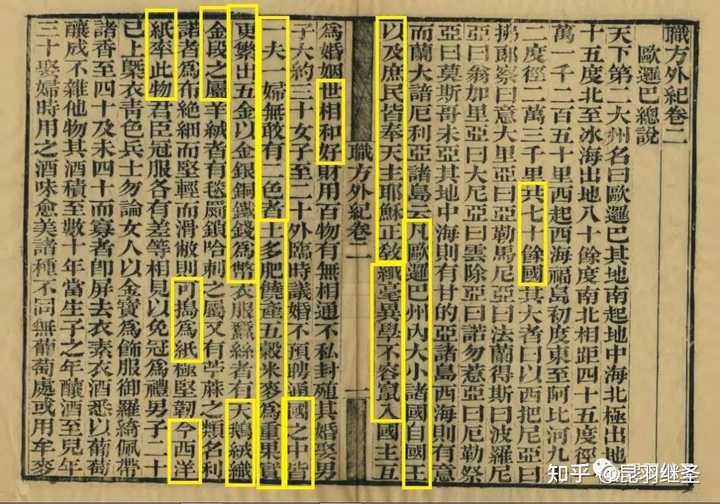 職方外紀卷二
歐邏巴總說
天下第二大州名曰歐邏巴其地南起地中海北極出地
十五度北至冰海出地八十餘度南北相距四十五度徑
萬一千二百五十里西起西海福島初度東至阿比河九
二度徑二萬三千里共七十餘國其大者曰以西把尼亞曰
拂郎察曰意大里亞曰亞勒馬尼亞曰法蘭得斯曰波羅尼
亞曰翁加里亞曰大尼亞曰雪除亞曰諾勿惹亞曰厄勒祭
亞曰莫斯哥未亞其地中海則有甘的亞諸島西海則有意
而蘭大諳厄利亞諸島云凡歐邏巴州內大小諸國自國王
以及庶民皆奉天主耶穌正敎纖毫異學不容竄入國主互
職方外紀卷二
一
爲婚姻世相和好財用百物有無相通不私封殖其婚娶男
子大約三十女子至二十外臨時議婚不預聘通國之中皆
一夫一婦無敢有二色者土多肥饒產五穀米麥爲重果實
更繁出五金以金銀銅鐵錢爲幣衣服蠶絲者有天鵝絨織
金段之屬羊絨者有毯罽鎖哈剌之屬又有苧蔴之類名利
諾者爲布絕細而堅輕而滑敝則可搗爲紙極堅韌今西洋
紙率此物君臣冠服各有差等相見以免冠爲禮男子二十
已上槩衣青色兵士勿論女人以金寶爲飾服御羅綺佩帶
諸香至四十及未四十而寡者卽屏去衣素衣酒悉以葡萄
釀成不雜他物其酒積至數十年當生子之年釀酒至兒年
三十娶婦時用之酒味愈美諸種不同無葡萄處或用牟麥
知乎 昆羽继圣